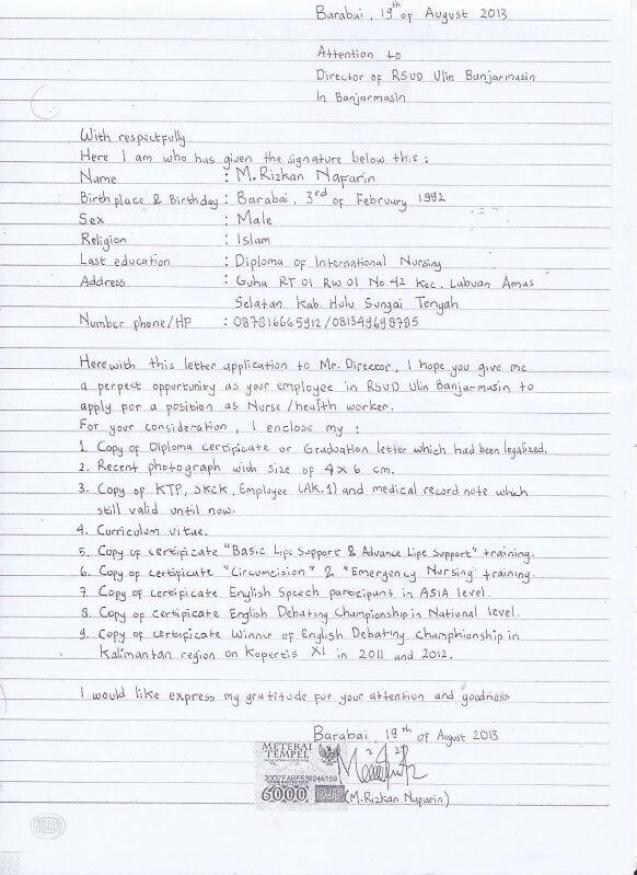 Barabai, 19th of August 2013
Attention to
Director of RSUD Ulin Banjarmasin
In Banjarmasin
With respectfully
Here I am who has given the signature below this :
Name : M. Rizkan Naparin
Birth place & Birthday : Barabai, 3rd of February 1992
Sex : Male
Religion : Islam
Last education : Diploma of International Nursing
Address : Guha RT 01 RW 01 No. 42 Kec. Labuan Amas
Selatan Kab. Hulu Sungai Tengah
Number phone/HP : 087816665912 /081349698785
Herewith this letter application to Mr. Director, I hope you give me
a perpect opportunity as your employee in RSUD Ulin Banjarmasin to
apply for a position as Nurse/health worker.
For your consideration, I enclose my :
1. Copy of Diploma certificate or Graduation letter which had been legalized.
2. Recent photograph with size of 4 x 6 cm.
3. Copy of KTP, SKCK, Employee (AK.1) and medical record note which
still valid until now.
4. Curriculum vitae.
5. Copy of certificate "Basic Life Support & Advance Life Support" training.
6. Copy of certificate "Circumcision" & "Emergency Nursing" training.
7. Copy of certificate English Speech participant in ASIA level.
8. Copy of certificate English Debating Championship in National level.
9. Copy of certificate Winner of English Debating Champhionship in
Kalimantan region on Kopertis XI in 2011 and 2012.
I would like express my gratitude for your attention and goodness
Barabai, 19th of August 2013
METERAI
TEMPEL
6000 DJP
(M. Rizkan Naparin)